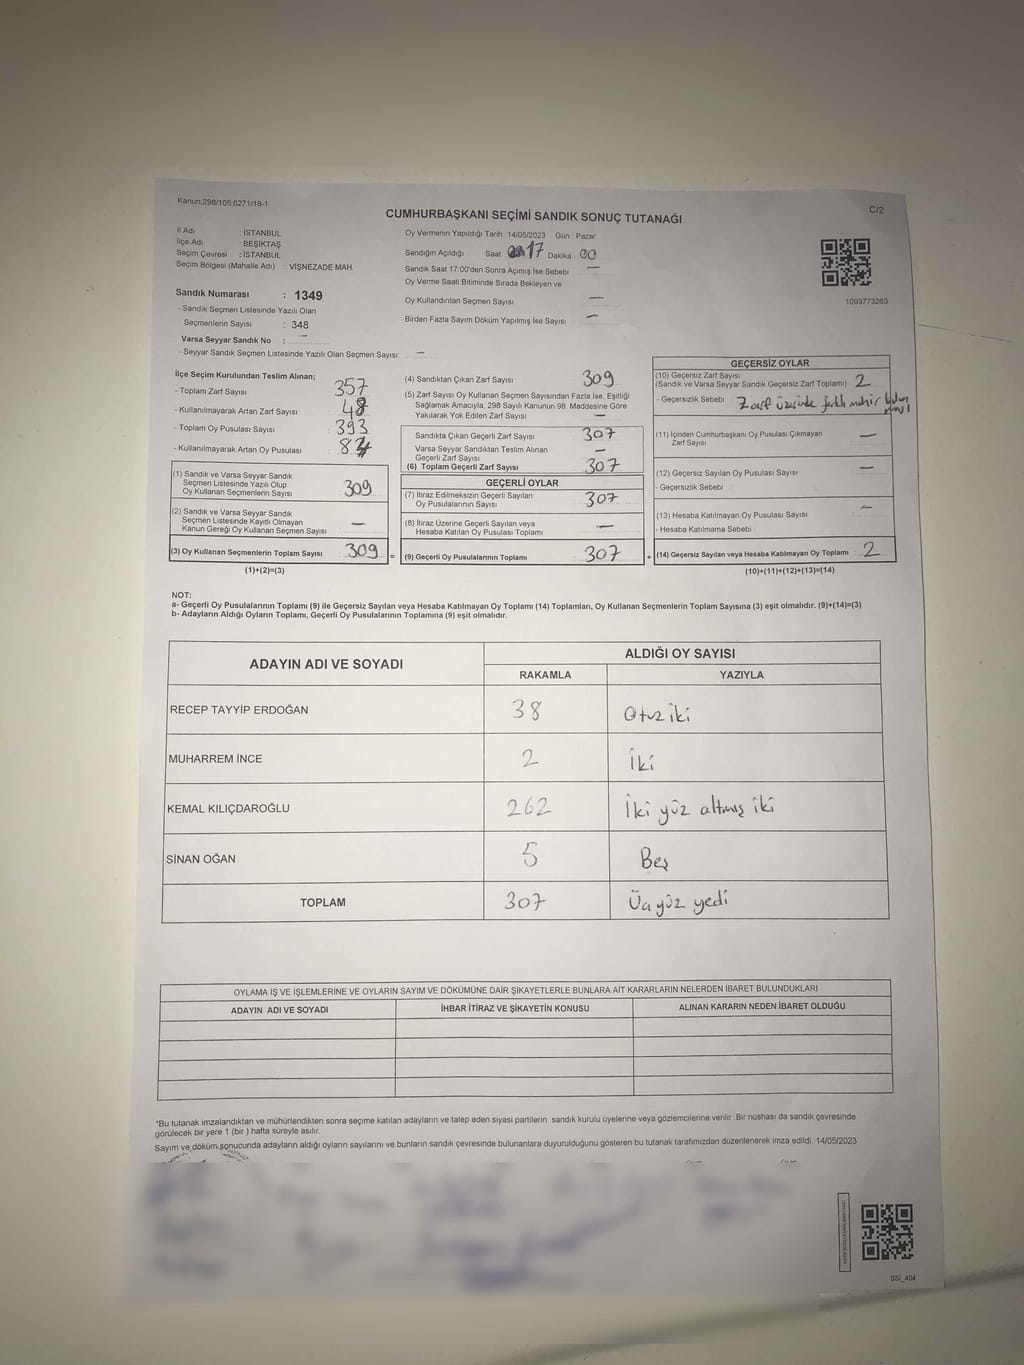 Kanun:298/105;6271/18-1
C/2
CUMHURBAŞKANI SEÇİMİ SANDIK SONUÇ TUTANAĞI
İl Adı : İSTANBUL
İlçe Adı : BEŞİKTAŞ
Seçim Çevresi : İSTANBUL
Seçim Bölgesi (Mahalle Adı) : VİŞNEZADE MAH.
Oy Vermenin Yapıldığı Tarih : 14/05/2023 Gün : Pazar
Sandığın Açıldığı Saat 17 Dakika 00
Sandık Saat 17:00'den Sonra Açımış İse Sebebi : —
Oy Verme Saati Bitiminde Sırada Bekleyen ve
Oy Kullandırılan Seçmen Sayısı —
Birden Fazla Sayım Döküm Yapılmış İse Sayısı : —
1093773263
Sandık Numarası : 1349
- Sandık Seçmen Listesinde Yazılı Olan
Seçmenlerin Sayısı : 348
Varsa Seyyar Sandık No : —
- Seyyar Sandık Seçmen Listesinde Yazılı Olan Seçmen Sayısı: —
İlçe Seçim Kurulundan Teslim Alınan;
- Toplam Zarf Sayısı : 357
- Kullanılmayarak Artan Zarf Sayısı : 48
- Toplam Oy Pusulası Sayısı : 393
- Kullanılmayarak Artan Oy Pusulası : 84
(1) Sandık ve Varsa Seyyar Sandık
Seçmen Listesinde Yazılı Olup
Oy Kullanan Seçmenlerin Sayısı 309
(2) Sandık ve Varsa Seyyar Sandık
Seçmen Listesinde Kayıtlı Olmayan
Kanun Gereği Oy Kullanan Seçmen Sayısı —
(3) Oy Kullanan Seçmenlerin Toplam Sayısı 309 =
(1)+(2)=(3)
(4) Sandıktan Çıkan Zarf Sayısı 309
(5) Zarf Sayısı Oy Kullanan Seçmen Sayısından Fazla İse, Eşitliği
Sağlamak Amacıyla, 298 Sayılı Kanunun 98. Maddesine Göre
Yakılarak Yok Edilen Zarf Sayısı —
Sandıkta Çıkan Geçerli Zarf Sayısı 307
Varsa Seyyar Sandıktan Teslim Alınan
Geçerli Zarf Sayısı —
(6) Toplam Geçerli Zarf Sayısı 307
GEÇERLİ OYLAR
(7) İtiraz Edilmeksizin Geçerli Sayılan
Oy Pusulalarının Sayısı 307
(8) İtiraz Üzerine Geçerli Sayılan veya
Hesaba Katılan Oy Pusulası Toplamı —
(9) Geçerli Oy Pusulalarının Toplamı 307 +
GEÇERSİZ OYLAR
(10) Geçersiz Zarf Sayısı
(Sandık ve Varsa Seyyar Sandık Geçersiz Zarf Toplamı) 2
- Geçersizlik Sebebi : Zarf üzerinde farklı mühir
(11) İçinden Cumhurbaşkanı Oy Pusulası Çıkmayan
Zarf Sayısı —
(12) Geçersiz Sayılan Oy Pusulası Sayısı —
- Geçersizlik Sebebi :
(13) Hesaba Katılmayan Oy Pusulası Sayısı —
- Hesaba Katılmama Sebebi :
(14) Geçersiz Sayılan veya Hesaba Katılmayan Oy Toplamı : 2
(10)+(11)+(12)+(13)=(14)
NOT:
a- Geçerli Oy Pusulalarının Toplamı (9) ile Geçersiz Sayılan veya Hesaba Katılmayan Oy Toplamı (14) Toplamları, Oy Kullanan Seçmenlerin Toplam Sayısına (3) eşit olmalıdır. (9)+(14)=(3)
b- Adayların Aldığı Oyların Toplamı, Geçerli Oy Pusulalarının Toplamına (9) eşit olmalıdır.
ADAYIN ADI VE SOYADI
ALDIĞI OY SAYISI
RAKAMLA YAZIYLA
RECEP TAYYİP ERDOĞAN 38 Otuz iki
MUHARREM İNCE 2 İki
KEMAL KILIÇDAROĞLU 262 İki yüz altmış iki
SİNAN OĞAN 5 Beş
TOPLAM 307 Üç yüz yedi
OYLAMA İŞ VE İŞLEMLERİNE VE OYLARIN SAYIM VE DÖKÜMÜNE DAİR ŞİKAYETLERLE BUNLARA AİT KARARLARIN NELERDEN İBARET BULUNDUKLARI
ADAYIN ADI VE SOYADI İHBAR İTİRAZ VE ŞİKAYETİN KONUSU ALINAN KARARIN NEDEN İBARET OLDUĞU
*Bu tutanak imzalandıktan ve mühürlendikten sonra seçime katılan adayların ve talep eden siyasi partilerin sandık kurulu üyelerine veya gözlemcilerine verilir. Bir nüshası da sandık çevresinde
görülecek bir yere 1 (bir ) hafta süreyle asılır.
Sayım ve döküm sonucunda adayların aldığı oyların sayılarını ve bunların sandık çevresinde bulunanlara duyurulduğunu gösteren bu tutanak tarafımızdan düzenlenerek imza edildi. 14/05/2023
SSI_404